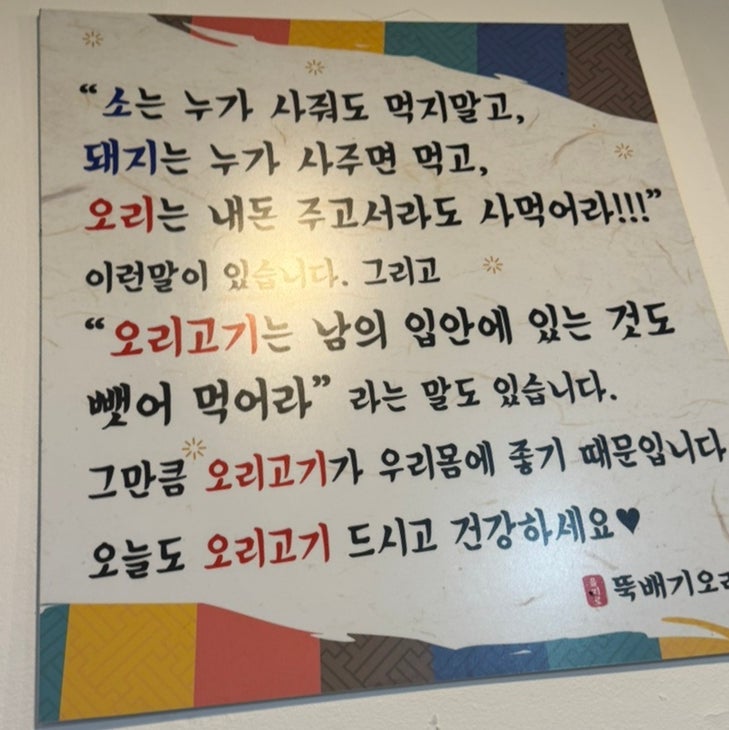 “소는 누가 사줘도 먹지말고,
돼지는 누가 사주면 먹고,
오리는 내돈 주고서라도 사먹어라!!!”
이런말이 있습니다. 그리고
“오리고기는 남의 입안에 있는 것도
뺏어 먹어라” 라는 말도 있습니다.
그만큼 오리고기가 우리몸에 좋기 때문입니다
오늘도 오리고기 드시고 건강하세요♥
뚝배기오리